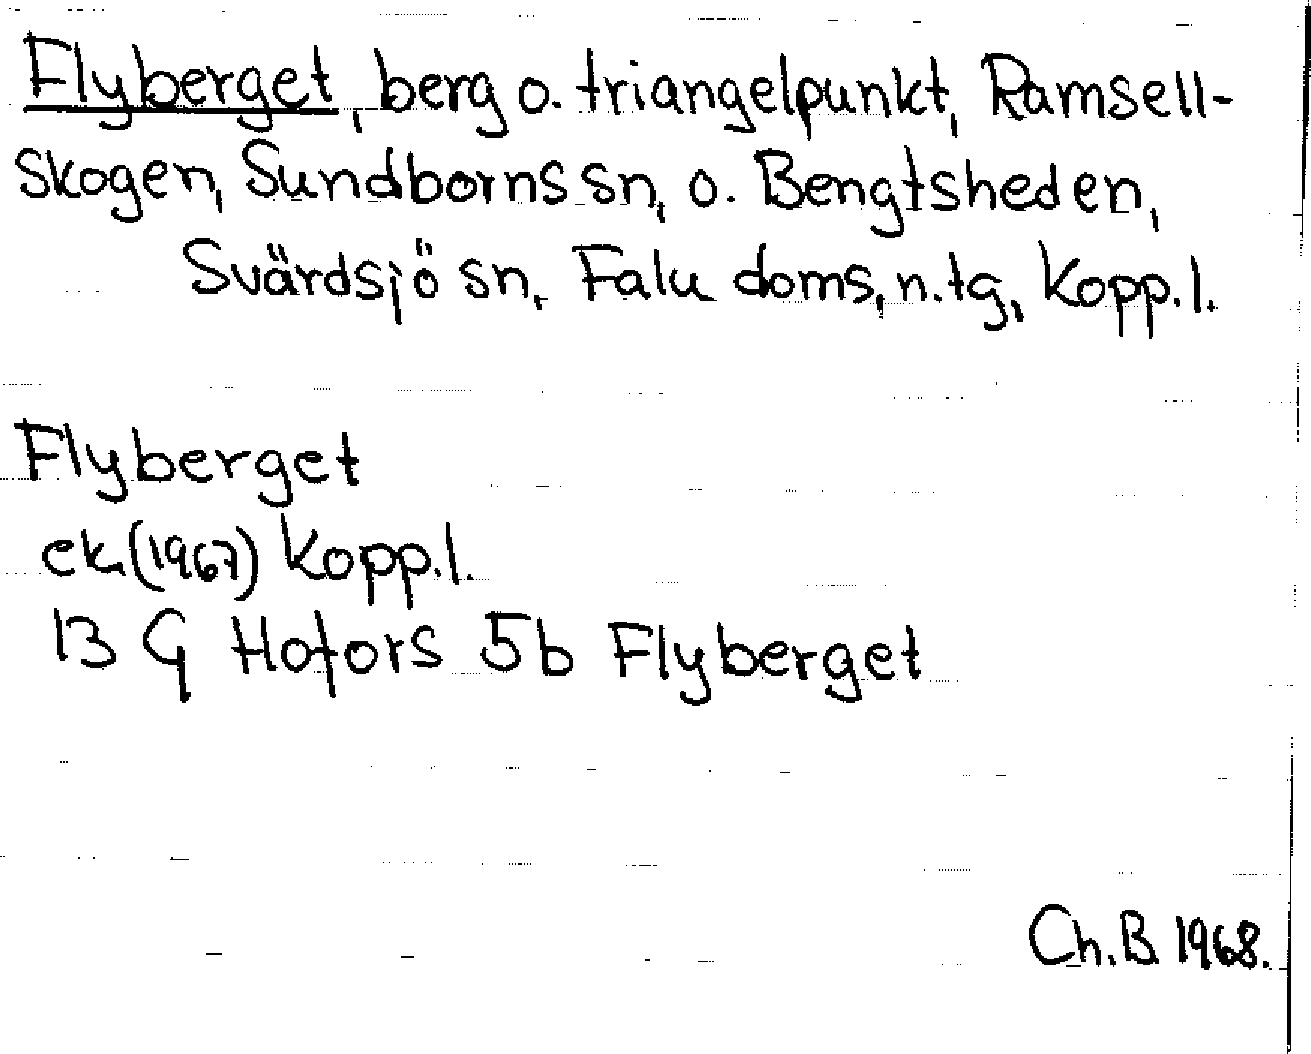 Flyberget, berg o. triangelpunkt, Ramsell-
skogen, Sundborns sn, o. Bengtsheden,
Svärdsjö sn, Falu doms, n.tg, Kopp.l.
Flyberget
ek (1967) Kopp.l.
13 G Hofors 5b Flyberget
Ch.B. 1968.